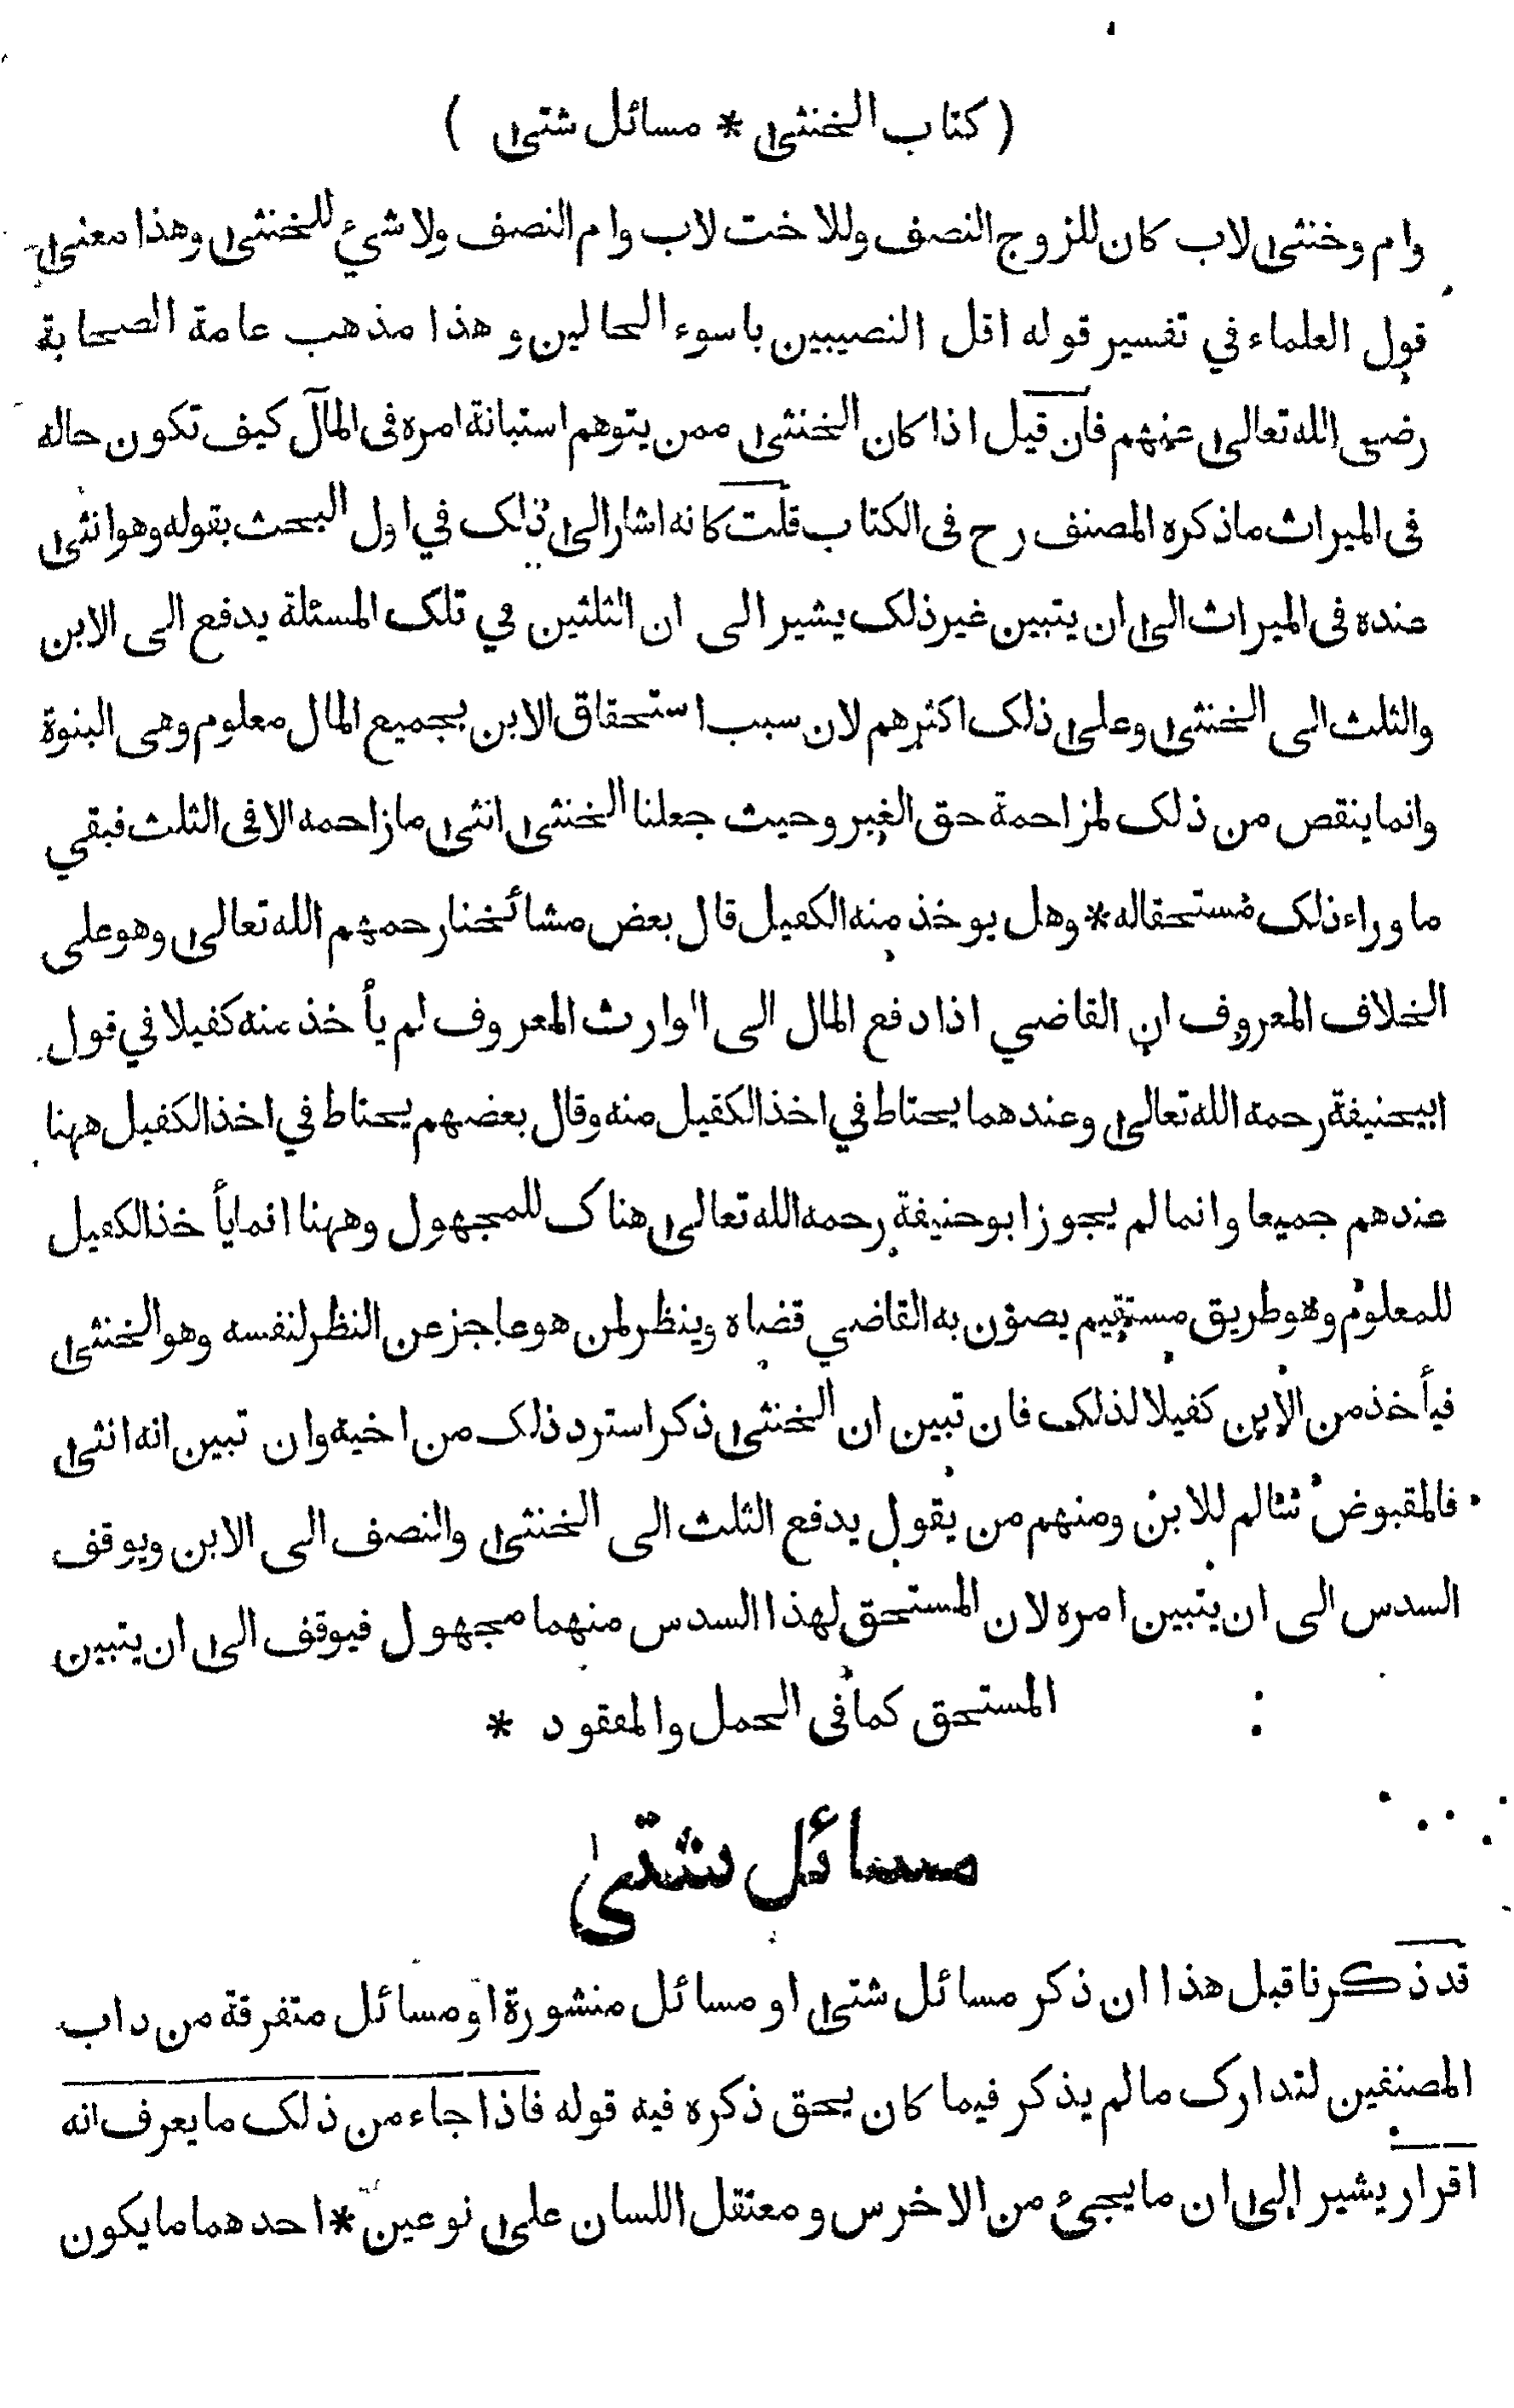 ( كتاب الخنثى * مسائل شتى )
وام وخنثى لاب كان للزوج النصف وللاخت لاب وام النصف ولا شيء للخنثى وهذا معنى
قول العلماء في تفسير قوله اقل النصيبين باسوء الحالين وهذا مذهب عامة الصحابة
رضي الله تعالى عنهم فان قيل اذا كان الخنثى ممن يتوهم استبانة امره في المآل كيف تكون حاله
في الميراث ماذكره المصنف رح في الكتاب قلت كانه اشار الى ذلك في اول البحث بقوله وهو انثى
عنده في الميراث الى ان يتبين غير ذلك يشير الى ان الثلثين في تلك المسئلة يدفع الى الابن
والثلث الى الخنثى وعلى ذلك اكثرهم لان سبب استحقاق الابن بجميع المال معلوم وهى البنوة
وانما ينقص من ذلك لمزاحمة حق الغير وحيث جعلنا الخنثى انثى ما زاحمه الا في الثلث فبقي
ما وراء ذلك مستحقا له * وهل يوخذ منه الكفيل قال بعض مشائخنا رحمهم الله تعالى وهو على
الخلاف المعروف ان القاضي اذا دفع المال الى الوارث المعروف لم يأخذ منه كفيلا في قول
ابيحنيفة رحمه الله تعالى وعندهما يحتاط في اخذ الكفيل منه وقال بعضهم يحتاط في اخذ الكفيل ههنا
عندهم جميعا وانما لم يجوز ابو حنيفة رحمه الله تعالى هناك للمجهول وههنا انما يأخذ الكفيل
للمعلوم وهو طريق مستقيم يصون به القاضي قضاه وينظر لمن هو عاجز عن النظر لنفسه وهو الخنثى
فيأخذ من الابن كفيلا لذلك فان تبين ان الخنثى ذكر استرد ذلك من اخيه وان تبين انه انثى
فالمقبوض سالم للابن ومنهم من يقول يدفع الثلث الى الخنثى والنصف الى الابن ويوقف
السدس الى ان يتبين امره لان المستحق لهذا السدس منهما مجهول فيوقف الى ان يتبين
المستحق كما في الحمل والمفقود *
مسائل شتى
قد ذكرنا قبل هذا ان ذكر مسائل شتى او مسائل منشورة او مسائل متفرقة من داب
المصنفين لتدارك ما لم يذكر فيما كان يحق ذكره فيه قوله فاذا جاء من ذلك ما يعرف انه
اقرار يشير الى ان ما يجيء من الاخرس ومعتقل اللسان على نوعين * احدهما ما يكون